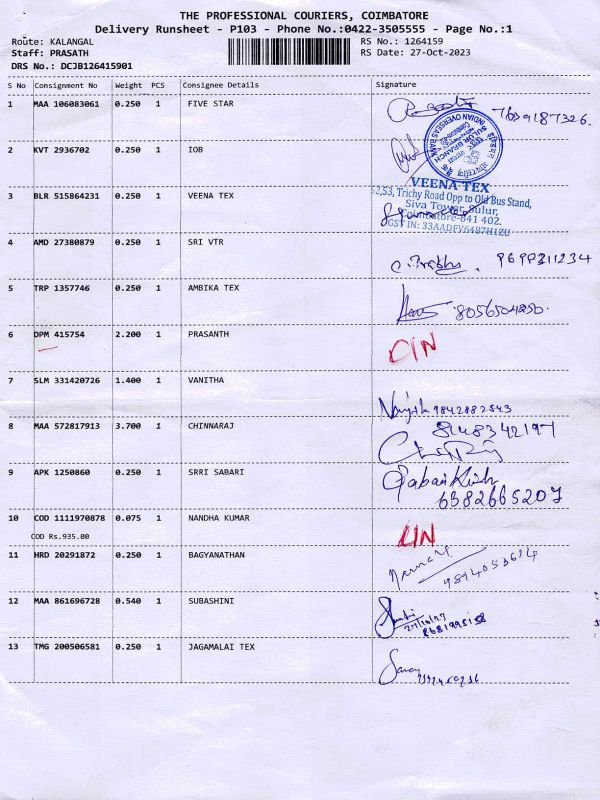 THE PROFESSIONAL COURIERS, COIMBATORE
Delivery Runsheet - P103 - Phone No.:0422-3505555 - Page No.:1
Route: KALANGAL RS No.: 1264159
Staff: PRASATH RS Date: 27-Oct-2023
DRS No.: DCJB126415901
S No Consignment No Weight PCS Consignee Details Signature
1 MAA 106083061 0.250 1 FIVE STAR 7639187326.
2 KVT 2936702 0.250 1 IOB
INDIAN OVERSEAS BANK
SULUR BRANCH
3 BLR 515864231 0.250 1 VEENA TEX
VEENA TEX
2,53, Trichy Road Opp to Old Bus Stand,
Siva Tower, Sulur,
Coimbatore-641 402.
GST IN: 33AADFV6487H1ZU
4 AMD 27380879 0.250 1 SRI VTR
5 TRP 1357746 0.250 1 AMBIKA TEX 8056504850.
6 DPM 415754 2.200 1 PRASANTH CIN
7 SLM 331420726 1.400 1 VANITHA 9842882543
8 MAA 572817913 3.700 1 CHINNARAJ 8148342197
9 APK 1250860 0.250 1 SRRI SABARI
6382665207
10 COD 1111970878 0.075 1 NANDHA KUMAR
COD Rs.935.00
11 HRD 20291872 0.250 1 BAGYANATHAN
12 MAA 861696728 0.540 1 SUBASHINI
13 TMG 200506581 0.250 1 JAGAMALAI TEX